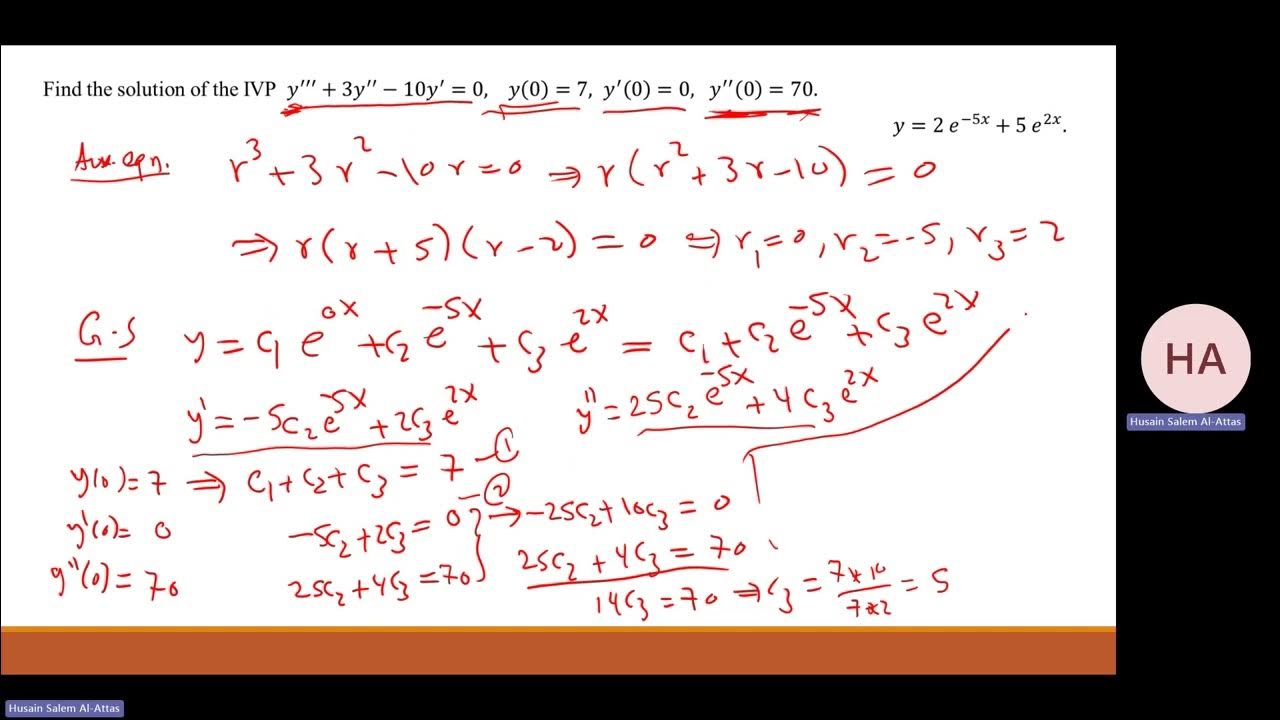 Find the solution of the IVP y′′′ + 3y′′ − 10y′ = 0, y(0) = 7, y′(0) = 0, y′′(0) = 70.
y = 2 e^{−5x} + 5 e^{2x}.
Aux. eqn. r^3 + 3r^2 − 10r = 0 ⇒ r(r^2 + 3r − 10) = 0
⇒ r(r + 5)(r − 2) = 0 ⇒ r_1 = 0, r_2 = −5, r_3 = 2
G.S y = c_1 e^{0x} + c_2 e^{−5x} + c_3 e^{2x} = c_1 + c_2 e^{−5x} + c_3 e^{2x}
y' = −5c_2 e^{−5x} + 2c_3 e^{2x} y'' = 25c_2 e^{−5x} + 4c_3 e^{2x}
y(0) = 7 ⇒ c_1 + c_2 + c_3 = 7 −①
y'(0) = 0 −5c_2 + 2c_3 = 0 −② } → −25c_2 + 10c_3 = 0
y''(0) = 70 25c_2 + 4c_3 = 70 25c_2 + 4c_3 = 70
14c_3 = 70 ⇒ c_3 = \frac{7*10}{7*2} = 5
HA
Husain Salem Al-Attas
Husain Salem Al-Attas